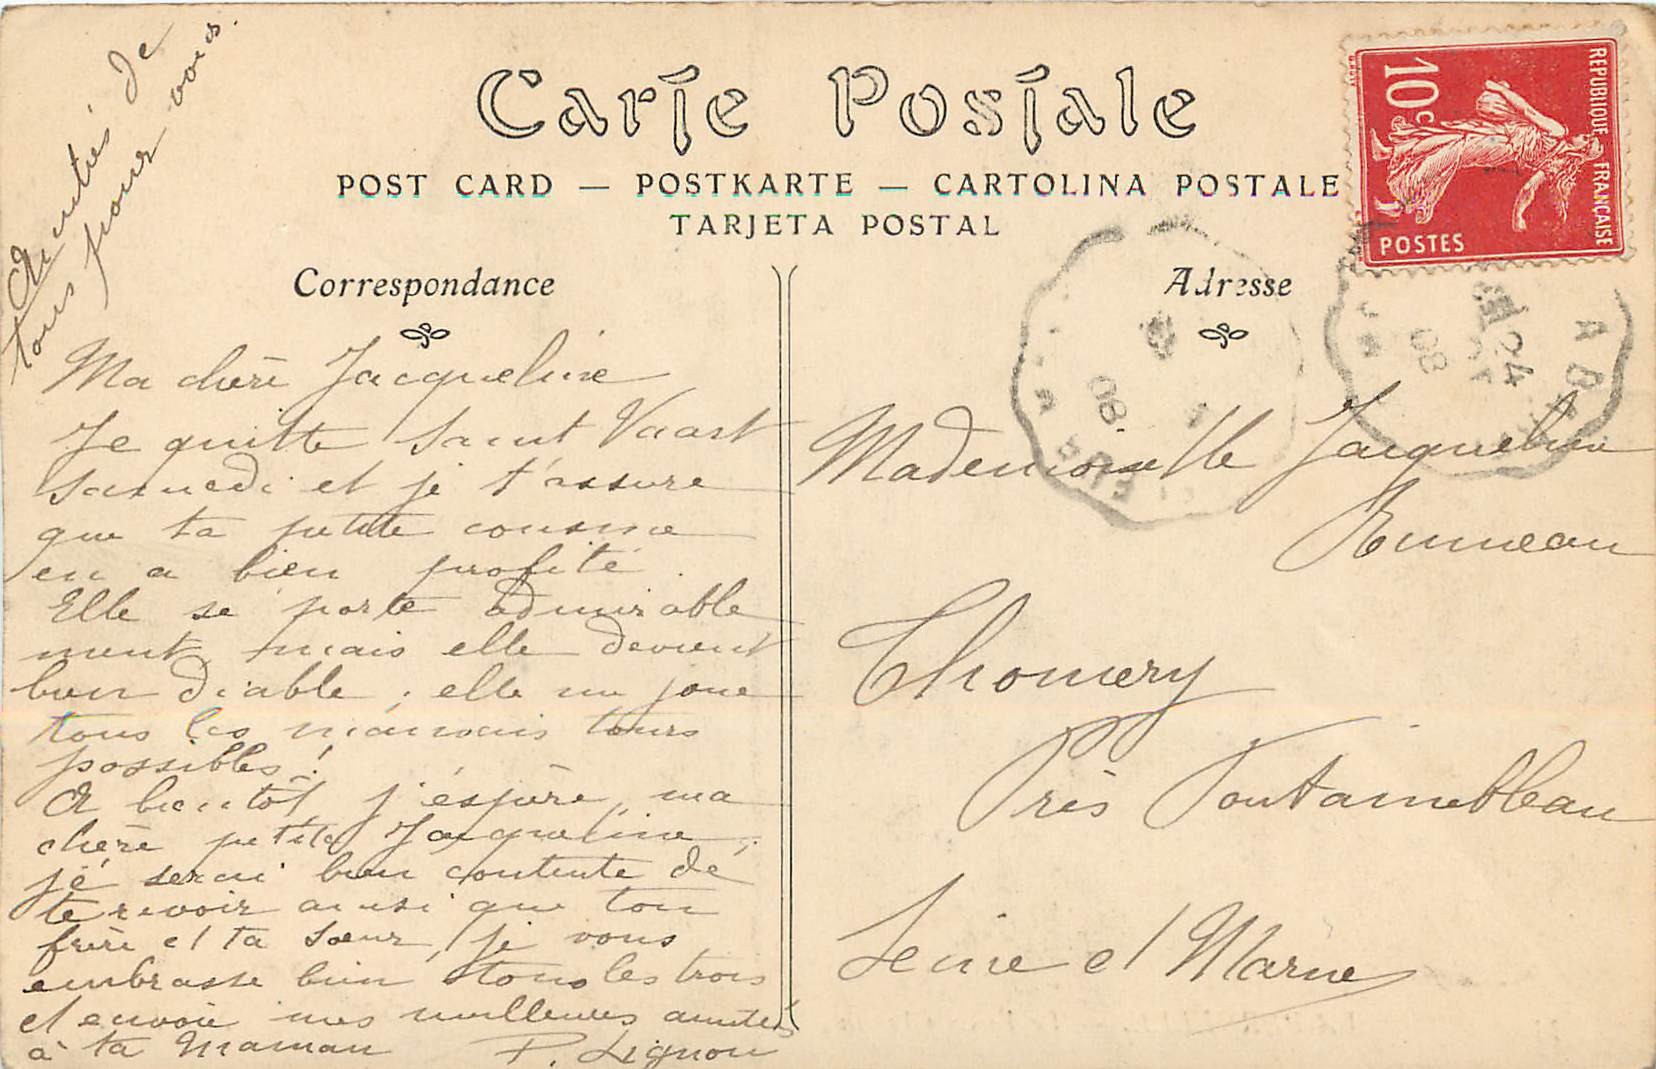 Amitiés de
tous pour vous.
Carte Postale
POST CARD — POSTKARTE — CARTOLINA POSTALE
TARJETA POSTAL
Correspondance
Adresse
REPUBLIQUE FRANÇAISE
10c
POSTES
24
08
08
Ma chère Jacqueline
Je quitte Saint Vaast
samedi et je t'assure
que ta petite cousine
en a bien profité.
Elle se porte admirable
ment, mais elle devient
bien diable, elle me joue
tous les mauvais tours
possibles!
A bientôt j'espère, ma
chère petite Jacqueline,
je serai bien contente de
te revoir ainsi que ton
frère et ta sœur, je vous
embrasse bien tous les trois
et envoie mes meilleures amitiés
à ta maman P. Lignon
Mademoiselle Jacqueline
Thomery
Près Fontainebleau
Seine et Marne